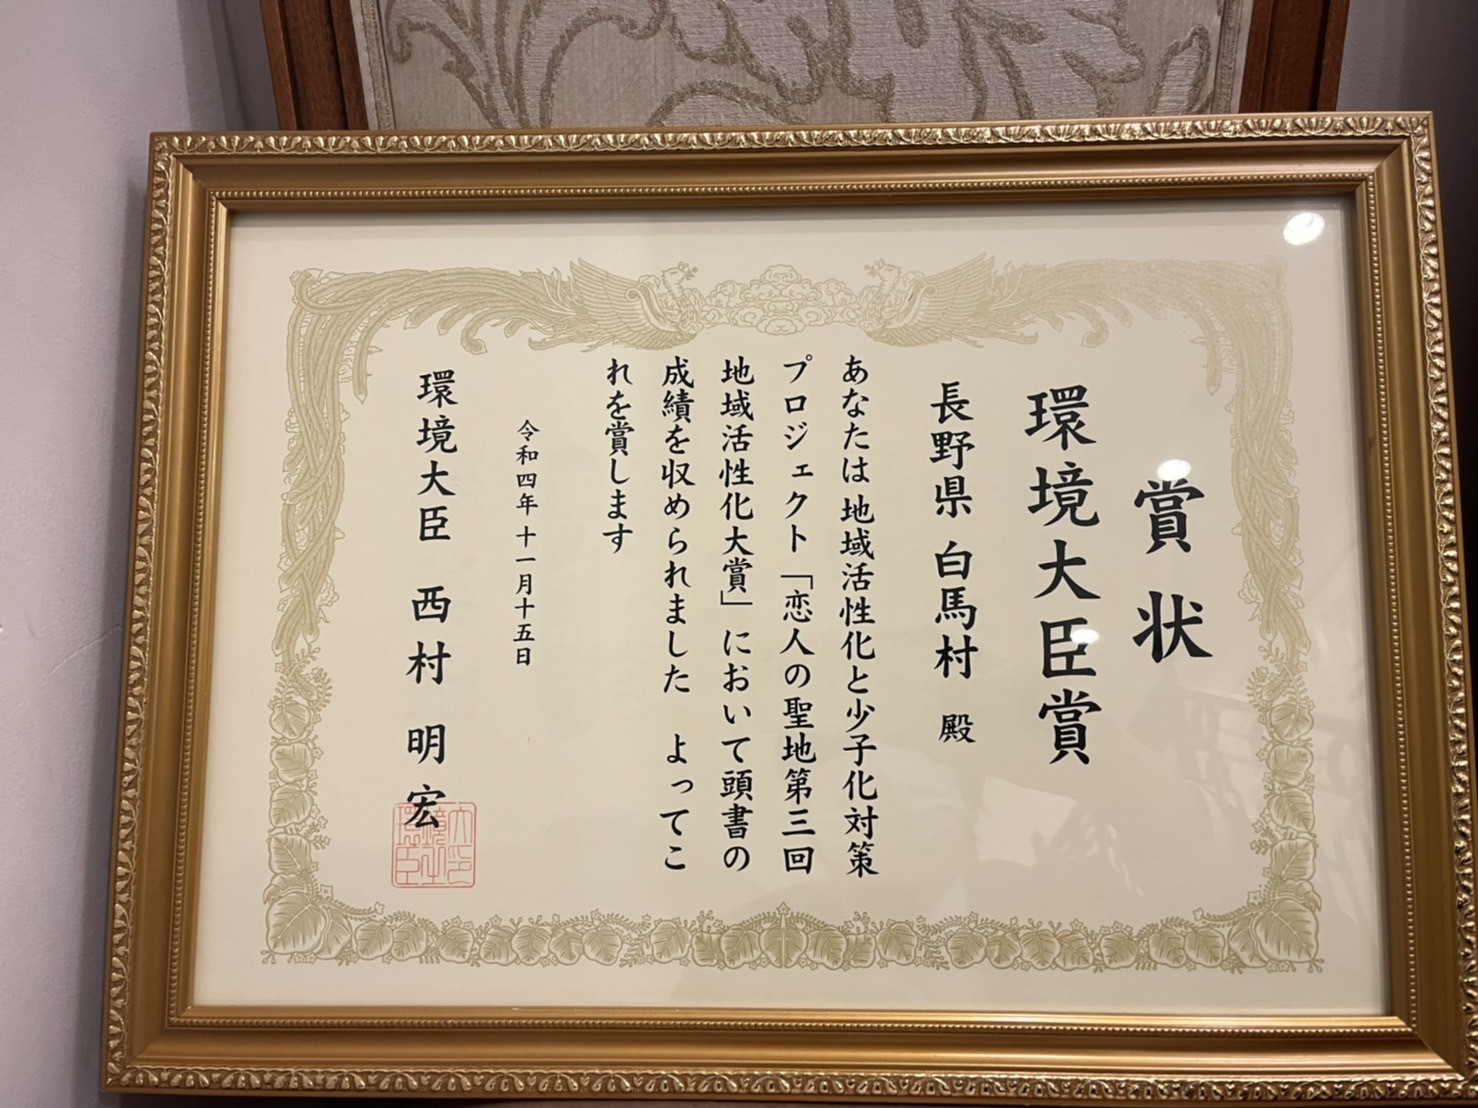 賞状
環境大臣賞
長野県 白馬村 殿
あなたは地域活性化と少子化対策
プロジェクト「恋人の聖地第三回
地域活性化大賞」において頭書の
成績を収められました よってこ
れを賞します
令和四年十一月十五日
環境大臣 西村 明宏
環境大臣之印